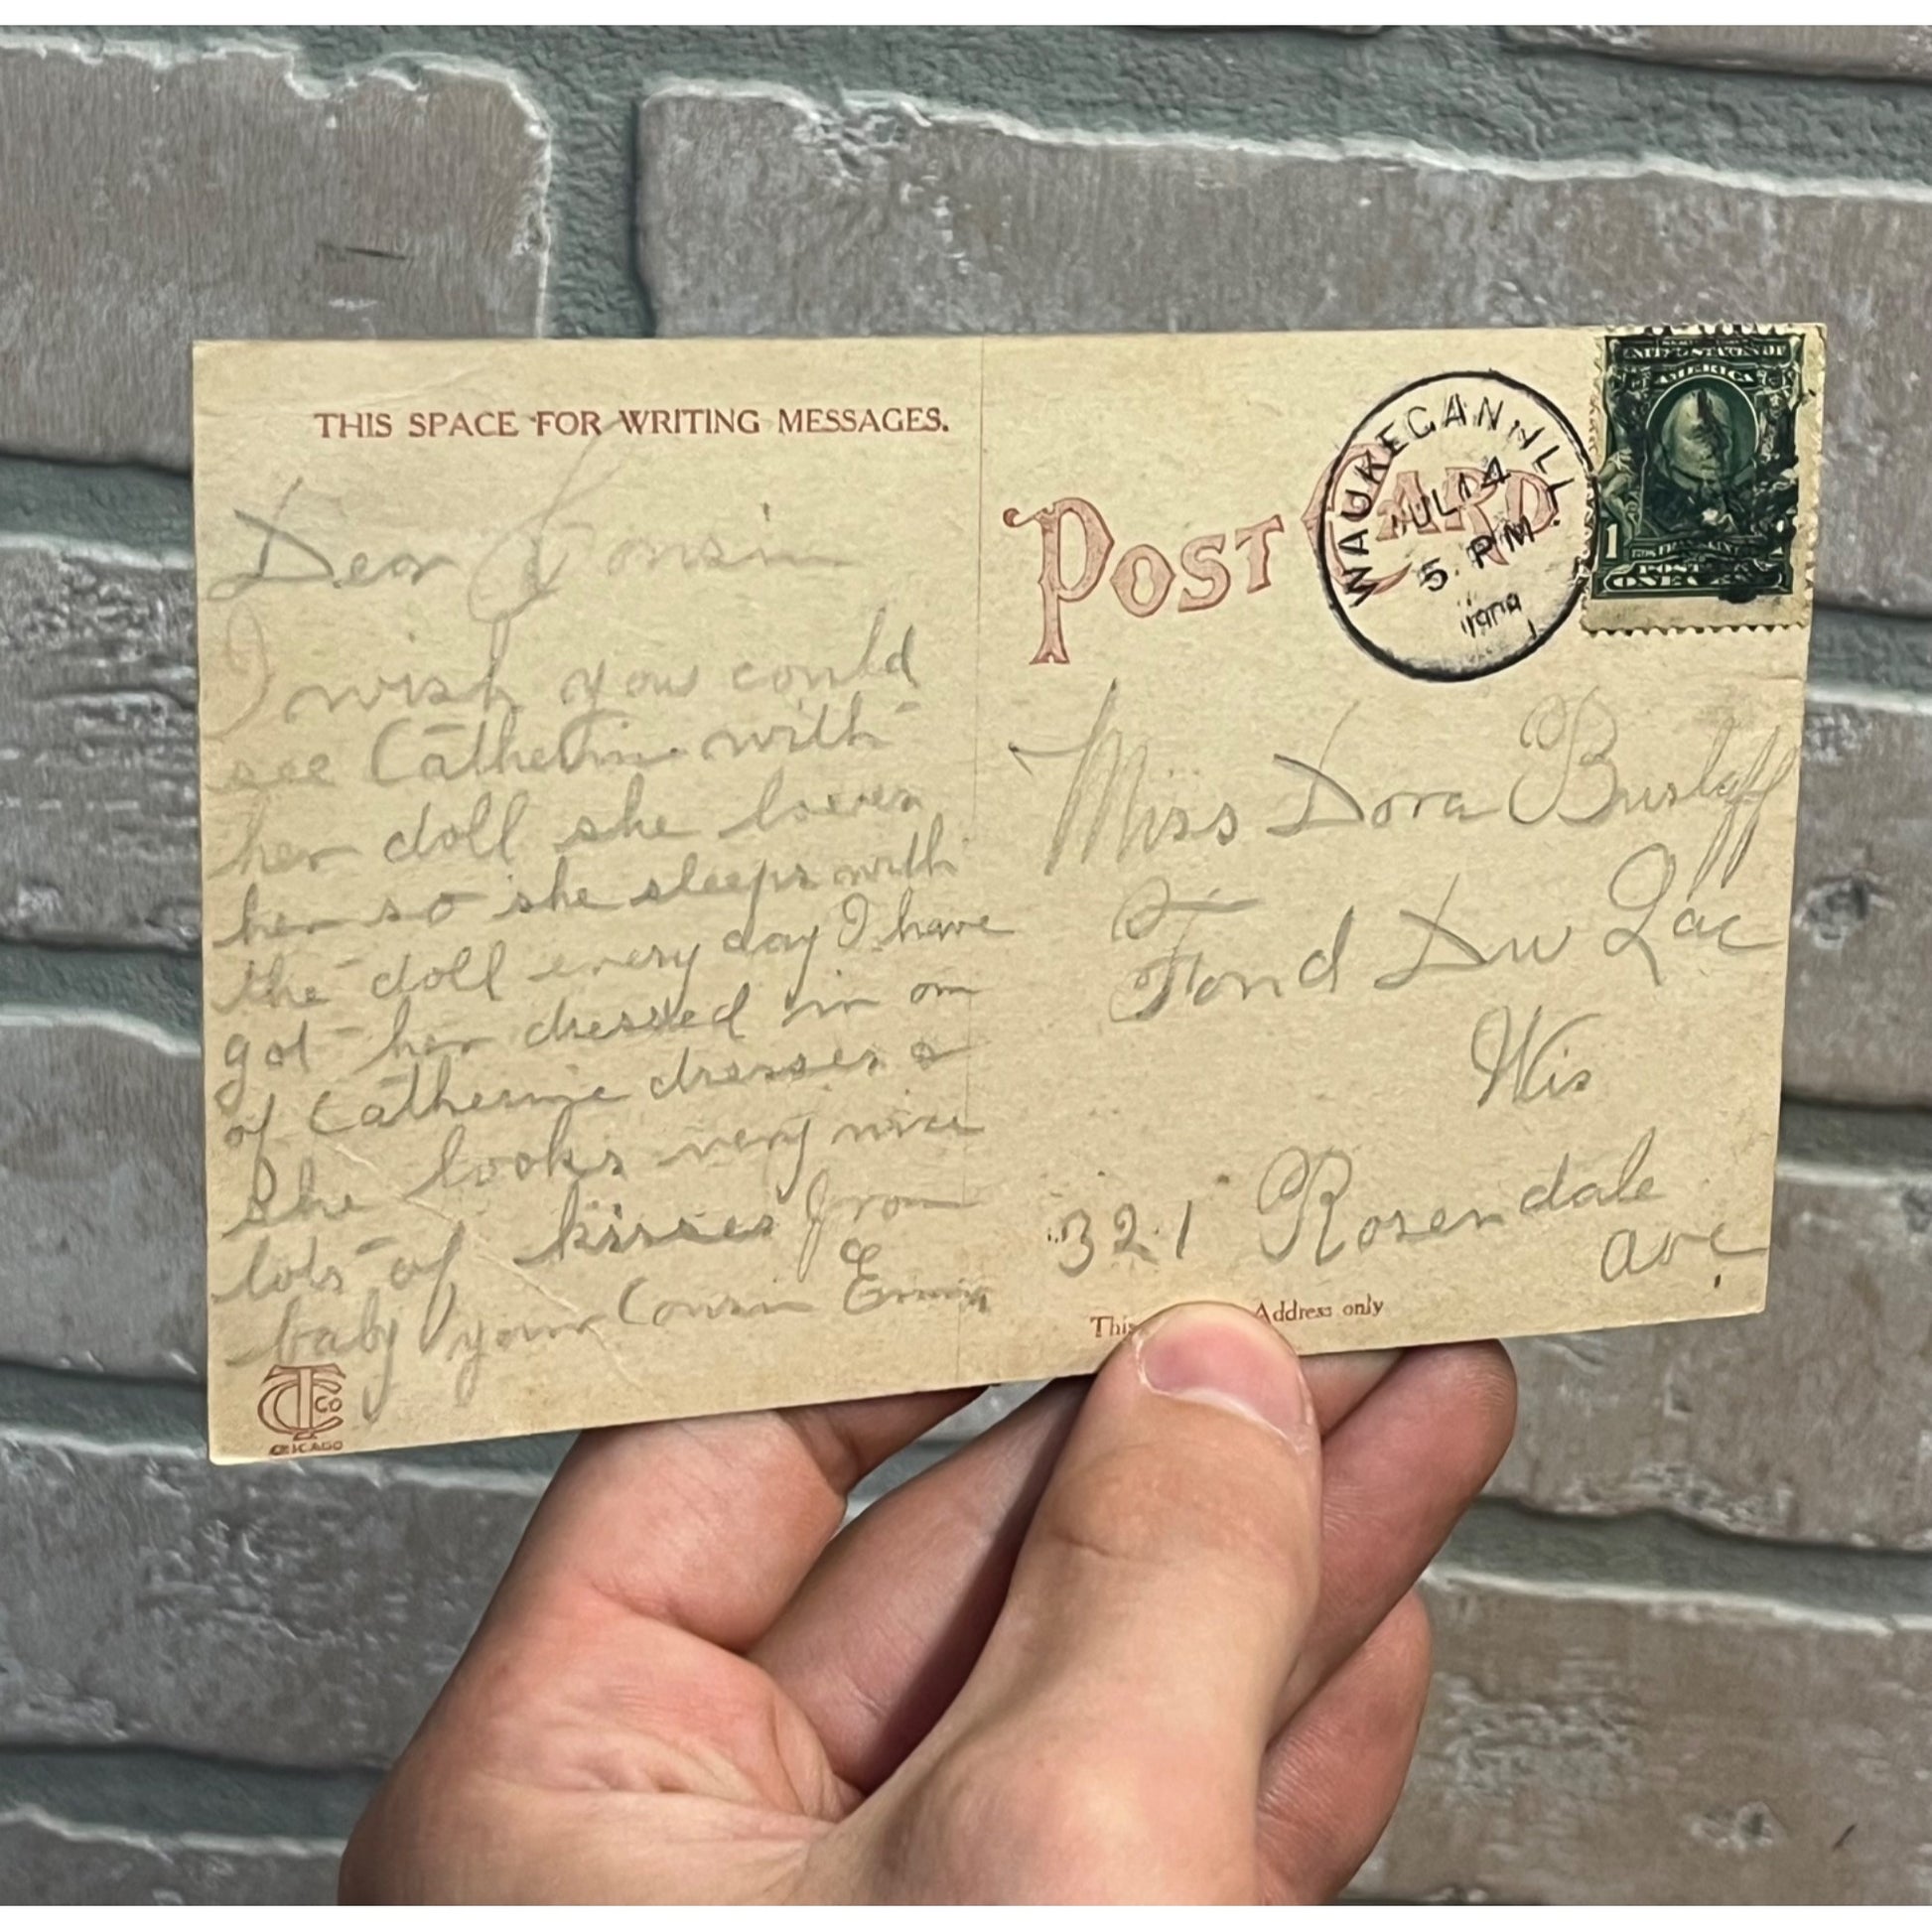 THIS SPACE FOR WRITING MESSAGES.
Dear Cousin
I wish you could
see Catherine with
her doll she loves
her so she sleeps with
the doll every day I have
got her dressed in on
of Catherine dresses &
she looks very nice
lots of kisses from
baby your Cousin Emma
CTCO
CHICAGO
POST CARD
WAUKEGAN, ILL.
JUL 14
5 PM
1909
UNITED STATES OF
AMERICA
1
POSTAGE
ONE CENT
Miss Dora Buslaff
Fond Du Lac
Wis
321 Rosendale
ave
This Address only